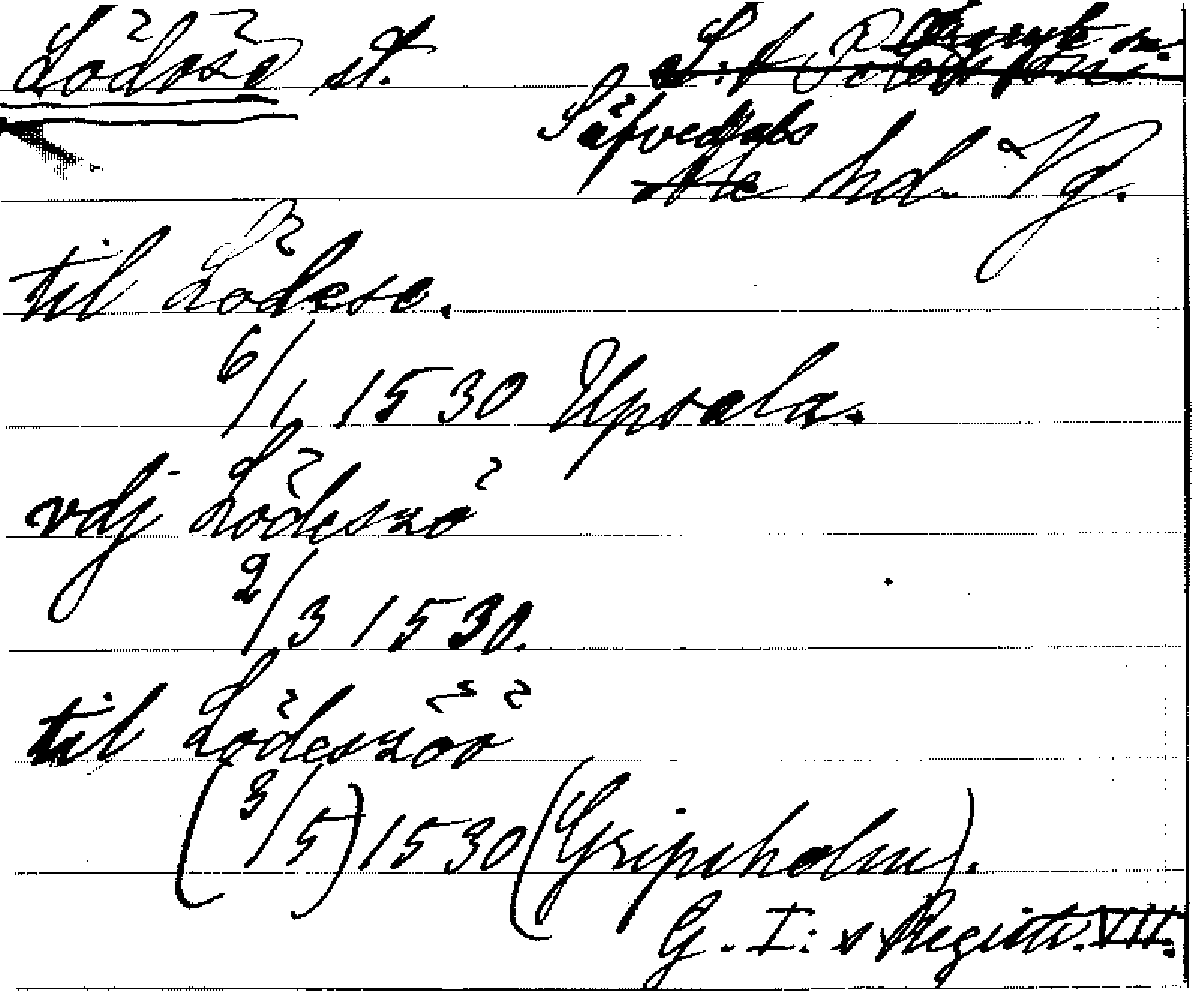 Lödöse st.
Säfvedals
hd. Vg.
til Lödese.
6/1 1530 Upsala.
vdj Lödeszö
2/3 1530.
til Lödeszöö
(3/5) 1530 (Gripsholm).
G. I:s Registr. VII.